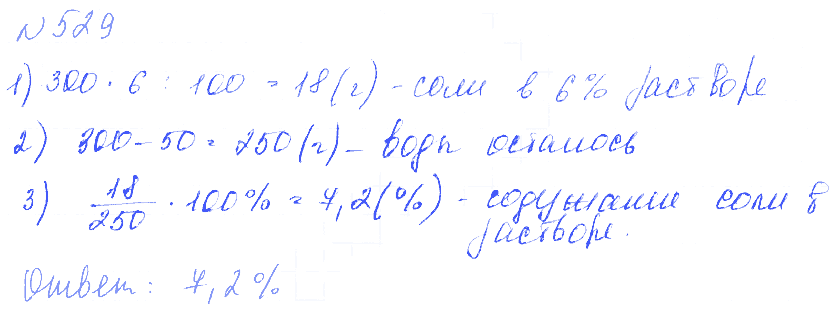 №529
1) 300 · 6 : 100 = 18 (г) - соли в 6% растворе
2) 300 - 50 = 250 (г) - воды осталось
3) 18/250 · 100% = 7,2 (%) - содержание соли в
растворе.
Ответ: 7,2%